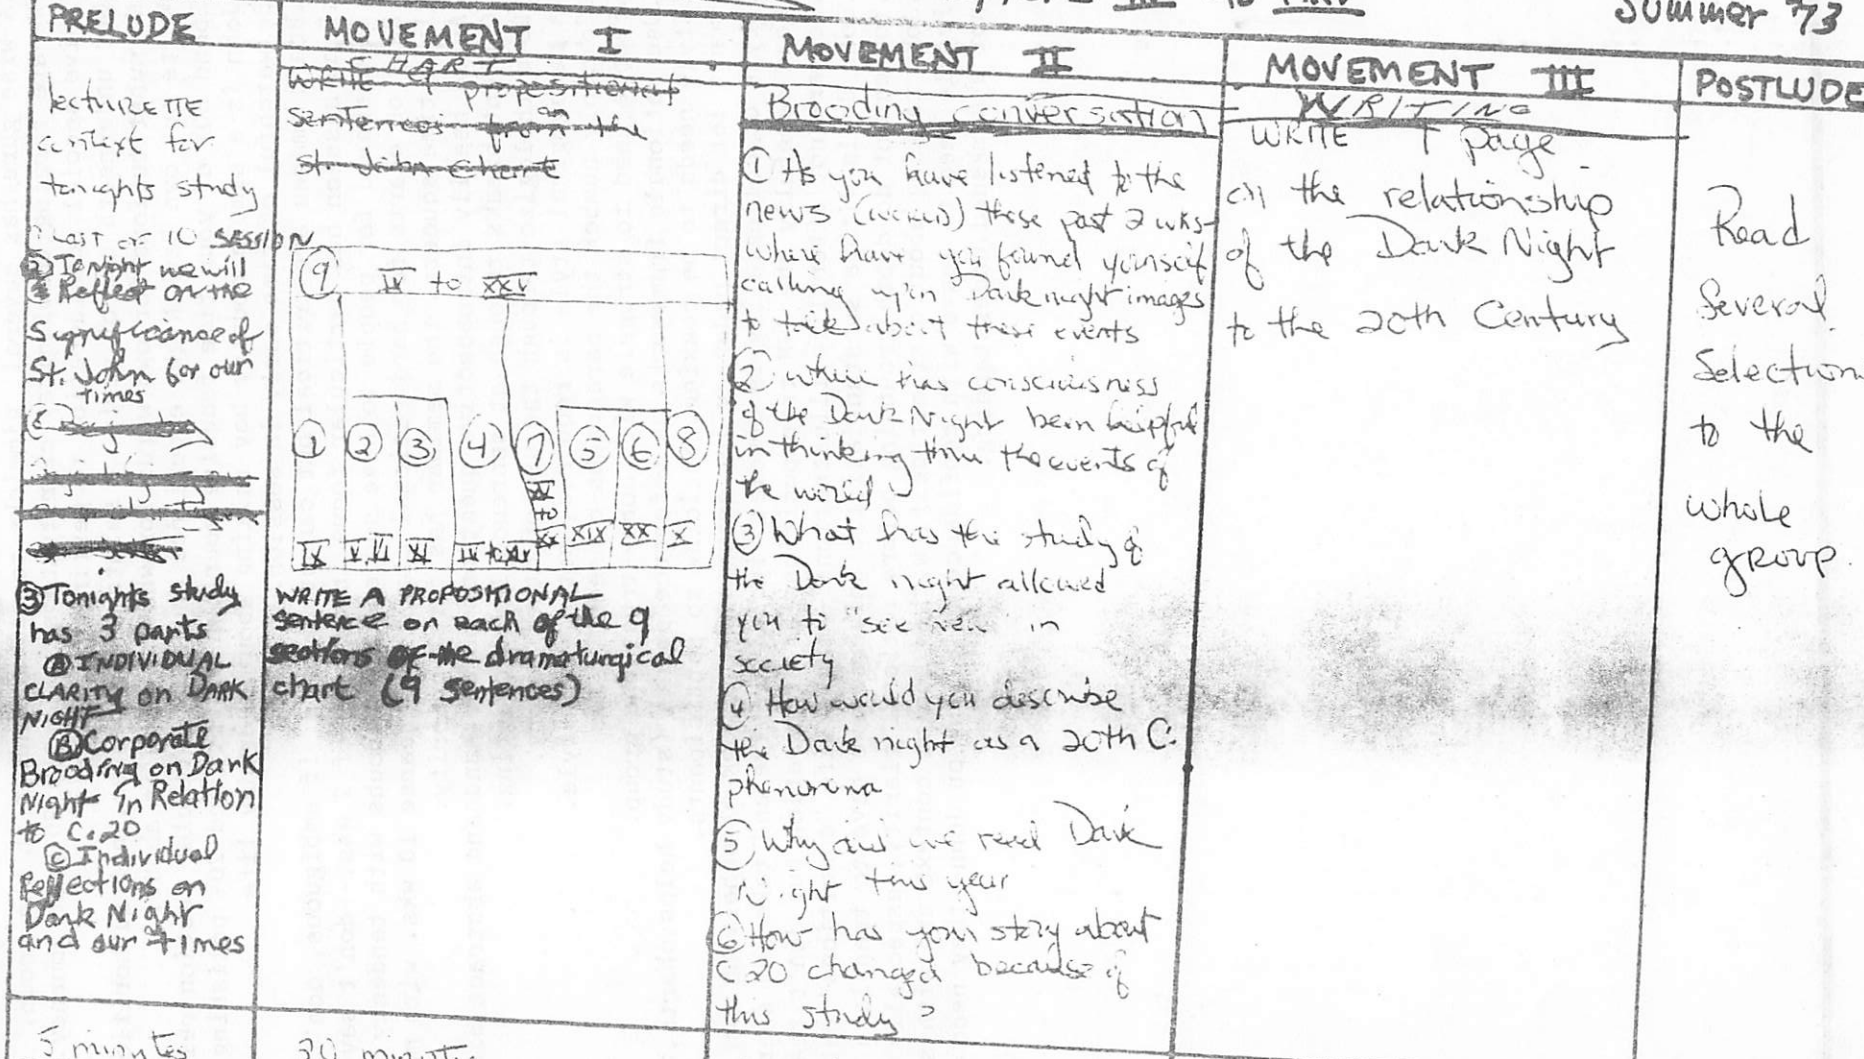 Summer 73
PRELUDE
lecturette
context for
tonights study
last of 10 SESSION
② Tonight we will
Reflect on the
Significance of
St. John for our
times
③ Tonights study
has 3 parts
Ⓐ INDIVIDUAL
CLARITY on DARK
NIGHT
Ⓑ Corporate
Brooding on Dark
Night in Relation
to C.20
Ⓒ Individual
Reflections on
Dark Night
and our times
5 minutes
MOVEMENT I
CHART
WRITE 9 propositional
sentences from the
St. John Chart
⑨ IV to XXV
① ② ③ ④ ⑦ ⑤ ⑥ ⑧
XV
to
IX V,VI XI XX XIX XX X
WRITE A PROPOSITIONAL
sentence on each of the 9
sections of the dramaturgical
chart (9 sentences)
MOVEMENT II
Brooding conversation
① As you have listened to the
news (world) these past 2 wks-
where have you found yourself
calling upon Dark night images
to talk about these events
② where has consciousness
of the Dark Night been helpful
in thinking thru the events of
the world
③ What has the study of
the Dark night allowed
you to "see new" in
society
④ How would you describe
the Dark night as a 20th C.
phenomena
⑤ Why did we read Dark
Night this year
⑥ How has your story about
C 20 changed because of
this study?
MOVEMENT III
WRITING
WRITE 1 page
on the relationship
of the Dark Night
to the 20th Century
POSTLUDE
Read
Several
Selection
to the
whole
group.